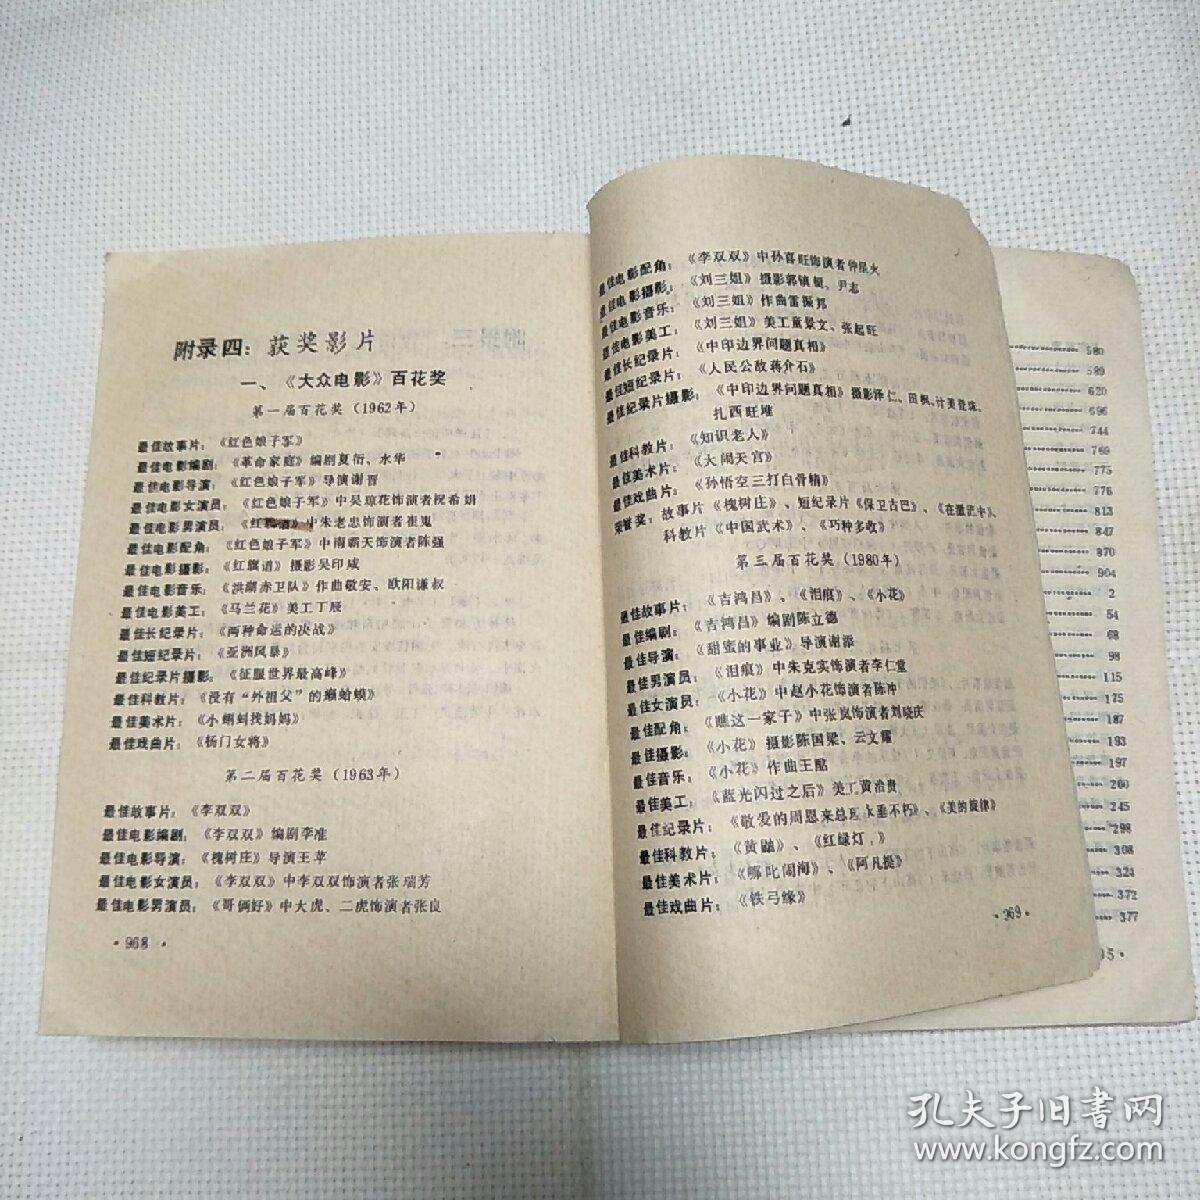 附录四：获奖影片
一、《大众电影》百花奖
第一届百花奖（1962年）
最佳故事片：《红色娘子军》
最佳电影编剧：《革命家庭》编剧夏衍、水华
最佳电影导演：《红色娘子军》导演谢晋
最佳电影女演员：《红色娘子军》中吴琼花饰演者祝希娟
最佳电影男演员：《红旗谱》中朱老忠饰演者崔嵬
最佳电影配角：《红色娘子军》中南霸天饰演者陈强
最佳电影摄影：《红旗谱》摄影吴印咸
最佳电影音乐：《洪湖赤卫队》作曲敬安、欧阳谦叔
最佳电影美工：《马兰花》美工丁辰
最佳长纪录片：《两种命运的决战》
最佳短纪录片：《亚洲风暴》
最佳纪录片摄影：《征服世界最高峰》
最佳科教片：《没有“外祖父”的癞蛤蟆》
最佳美术片：《小蝌蚪找妈妈》
最佳戏曲片：《杨门女将》
第二届百花奖（1963年）
最佳故事片：《李双双》
最佳电影编剧：《李双双》编剧李准
最佳电影导演：《槐树庄》导演王苹
最佳电影女演员：《李双双》中李双双饰演者张瑞芳
最佳电影男演员：《哥俩好》中大虎、二虎饰演者张良
·968·
最佳电影配角：《李双双》中孙喜旺饰演者仲星火
最佳电影摄影：《刘三姐》摄影郭镇铤、尹志
最佳电影音乐：《刘三姐》作曲雷振邦
最佳电影美工：《刘三姐》美工童景文、张起旺
最佳长纪录片：《中印边界问题真相》
最佳短纪录片：《人民公敌蒋介石》
最佳纪录片摄影：《中印边界问题真相》摄影泽仁、田枫、计美登珠、
扎西旺堆
最佳科教片：《知识老人》
最佳美术片：《大闹天宫》
最佳戏曲片：《孙悟空三打白骨精》
荣誉奖：故事片《槐树庄》、短纪录片《保卫古巴》、《在激流中》
科教片《中国武术》、《巧种多收》
第三届百花奖（1980年）
最佳故事片：《吉鸿昌》、《泪痕》、《小花》
最佳编剧：《吉鸿昌》编剧陈立德
最佳导演：《甜蜜的事业》导演谢添
最佳男演员：《泪痕》中朱克实饰演者李仁堂
最佳女演员：《小花》中赵小花饰演者陈冲
最佳配角：《瞧这一家子》中张岚饰演者刘晓庆
最佳摄影：《小花》摄影陈国梁、云文耀
最佳音乐：《小花》作曲王酩
最佳美工：《蓝光闪过之后》美工黄治贵
最佳纪录片：《敬爱的周恩来总理永垂不朽》、《美的旋律》
最佳科教片：《黄鼬》、《红绿灯下》
最佳美术片：《哪吒闹海》、《阿凡提》
最佳戏曲片：《铁弓缘》
·969·
580
589
620
696
744
769
775
776
813
847
870
904
2
54
68
98
115
175
187
193
197
200
245
298
308
323
372
377
孔夫子旧书网
www.kongfz.com